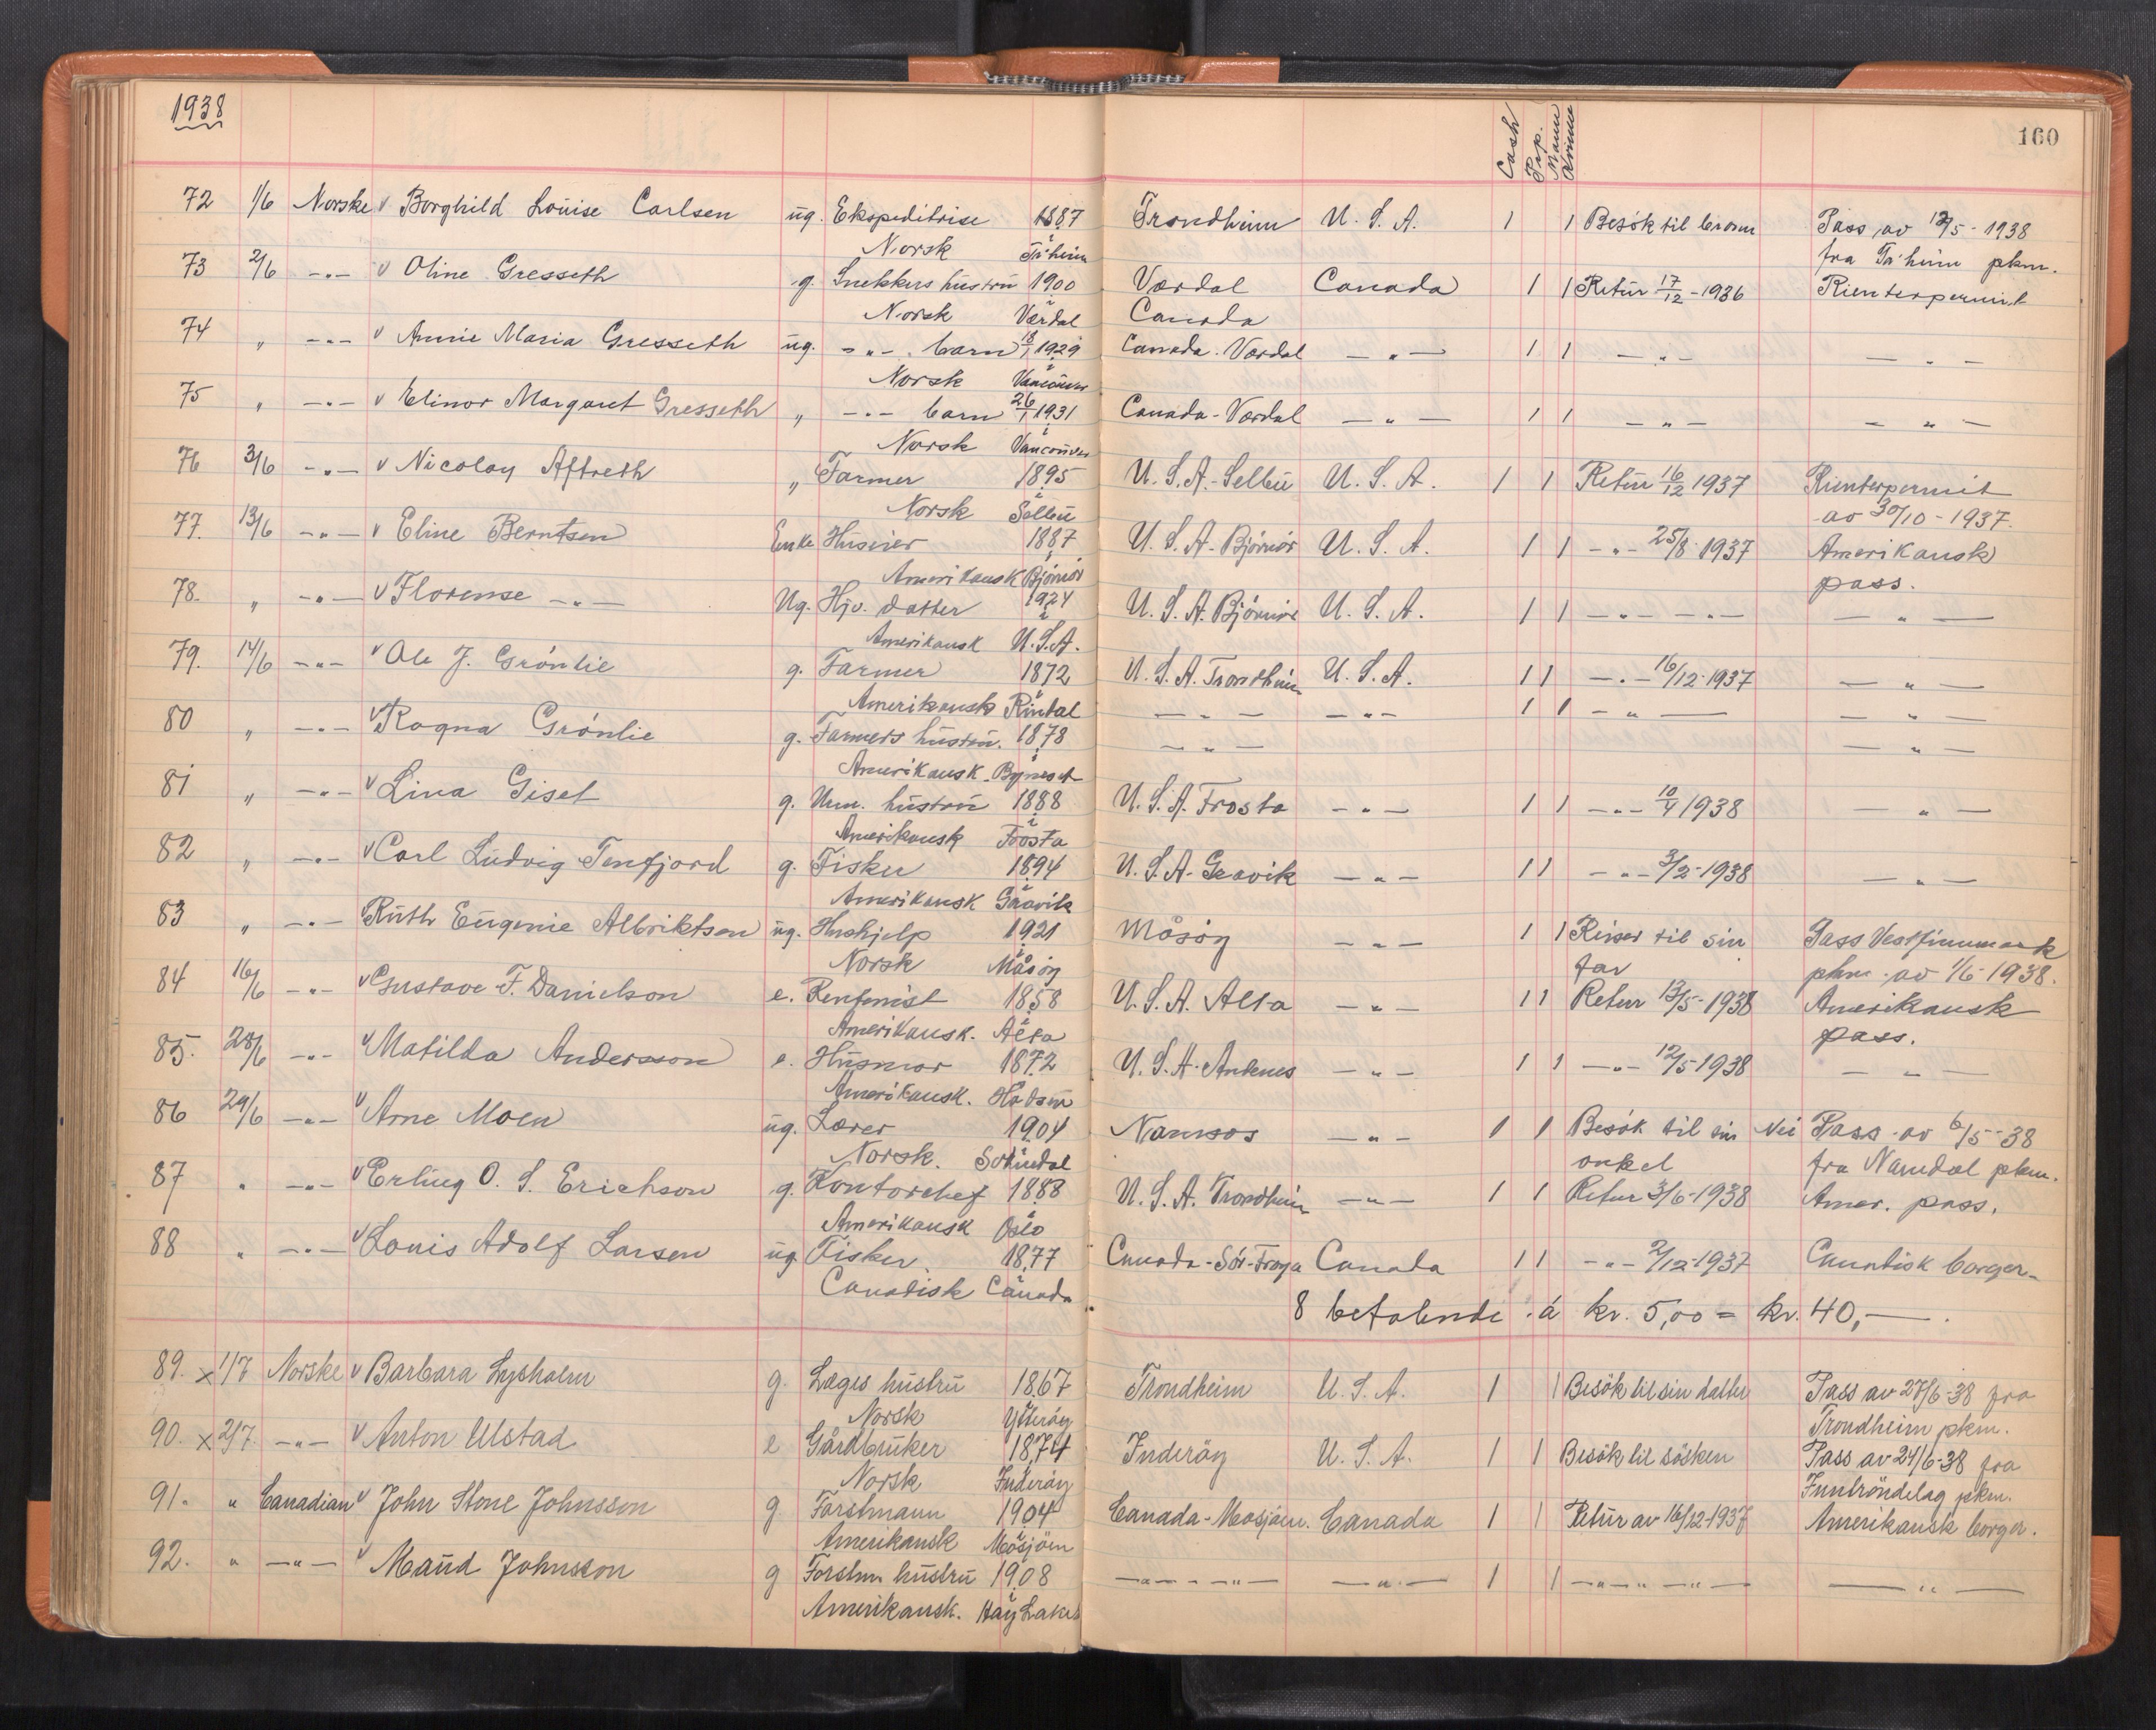 1938
160
Cash Prp. Mann Kvinne
72 1/6 Norske v Borghild Louise Carlsen ug. Ekspeditrise 1887 Trondheim U.S.A. 1 1 Besök til Pass av 12/5-1938
Norsk Tr.heim fra Tr.heim pkm.
73 2/6 -"- v Oline Gresseth g. Snekkers hustru 1900 Værdal Canada 1 1 Retur 17/12-1936 Rienterpermit
Norsk Værdal Canada
74 " -"- v Annie Maria Gresseth ug. -"- barn 18/1 1929 Canada-Værdal -"- 1 1 -"- -"-
Norsk Vancouver
75 " -"- v Elinor Margaret Gresseth " -"- barn 26/1 1931 Canada-Værdal -"- 1 1 -"- -"-
Norsk Vancouver
76 3/6 -"- v Nicolay Aftreth " Farmer 1895 U.S.A.-Selbu U.S.A. 1 1 Retur 16/12 1937 Rienterpermit
Norsk Selbu av 30/10-1937.
77. 13/6 -"- v Eline Berntsen Enke Husvier 1887 U.S.A-Björnör U.S.A. 1 1 -"- 25/8-1937 Amerikansk
Amerikansk Björnör pass.
78. " -"- v Florense -"- Ug. Hjv. datter 1924 U.S.A. Björnör U.S.A. 1 1 -"- -"- -"-
Amerikansk U.S.A.
79. 14/6 -"- v Ole J. Grönlie g. Farmer 1872 U.S.A. Trondheim U.S.A. 1 1 -"- 16/12-1937 -"-
Amerikansk Rindal -"- -"- 1 1 -"- -"-
80 " -"- v Ragna Grönlie g. Farmers hustru. 1878 -"- -"-
Amerikansk. Byneset
81 " -"- v Lina Giset g. hustru 1888 U.S.A. Frosta -"- 1 1 -"- 10/4 1938 -"-
Amerikansk Frosta
82 " -"- v Carl Ludvig Tenfjord g. Fisker 1894 U.S.A-Gravik -"- 1 1 -"- 3/2-1938 -"-
Amerikansk Gravik
83 " -"- Ruth Eugenie Albriktsen ug. Hushjelp 1921 Måsöy -"- 1 1 Reiser til sin Pass Vestfinnmark
Norsk Måsöy far pkm. av 1/6-1938.
84 16/6 -"- v Gustave F. Danielson e. Rentenist 1858 U.S.A. Alta -"- 1 1 Retur 13/5-1938 Amerikansk
Amerikansk. Alta pass.
85. 28/6 -"- v Matilda Andersson e. Husmor 1872 U.S.A. Andenes -"- 1 1 -"- 12/5-1938 -"-
Amerikansk. Hadsel
86 29/6 -"- v Arne Moen ug. Lærer 1904 Namsos -"- 1 1 Besök til sin Nei Pass av 6/5-38
Norsk. onkel fra Namdal pkm.
87 " -"- v Erling O. S. Erichson g. Kontorchef 1888 U.S.A. Trondheim -"- 1 1 Retur 3/6-1938 Amer. pass.
Amerikansk Oslo
88 " -"- v Louis Adolf Larsen ug Fisker. 1877 Canada-Sör-Fröya Canada 1 1 -"- 2/12-1937 Canadisk borger-
Canadisk Canada
8 betalende á kr. 5,00 = kr. 40,-
89. x 1/7 Norske v Barbara Lysholm g. Læges hustru 1867 Trondheim U.S.A. 1 1 Besök til sin datter Pass av 27/6-38 fra
Norsk Ytteröy Trondheim pkm.
90. x 2/7 -"- v Anton Ulstad e Gårdbruker 1874 Inderöy U.S.A. 1 1 Besök til sösken Pass av 24/6-38 fra
Norsk Inderöy Inntröndelag pkm.
91. " Canadian v John Stone Johnsson g Forstmann 1904 Canada-Mosjöen. Canada 1 1 Retur av 16/12-1937 Amerikansk borger.
Amerikansk Mosjöen
92. " -"- v Maud Johnsson g Forstm. hustru 1908 -"- -"- -"- 1 1 -"- -"- -"-
Amerikansk. Hay Lakes